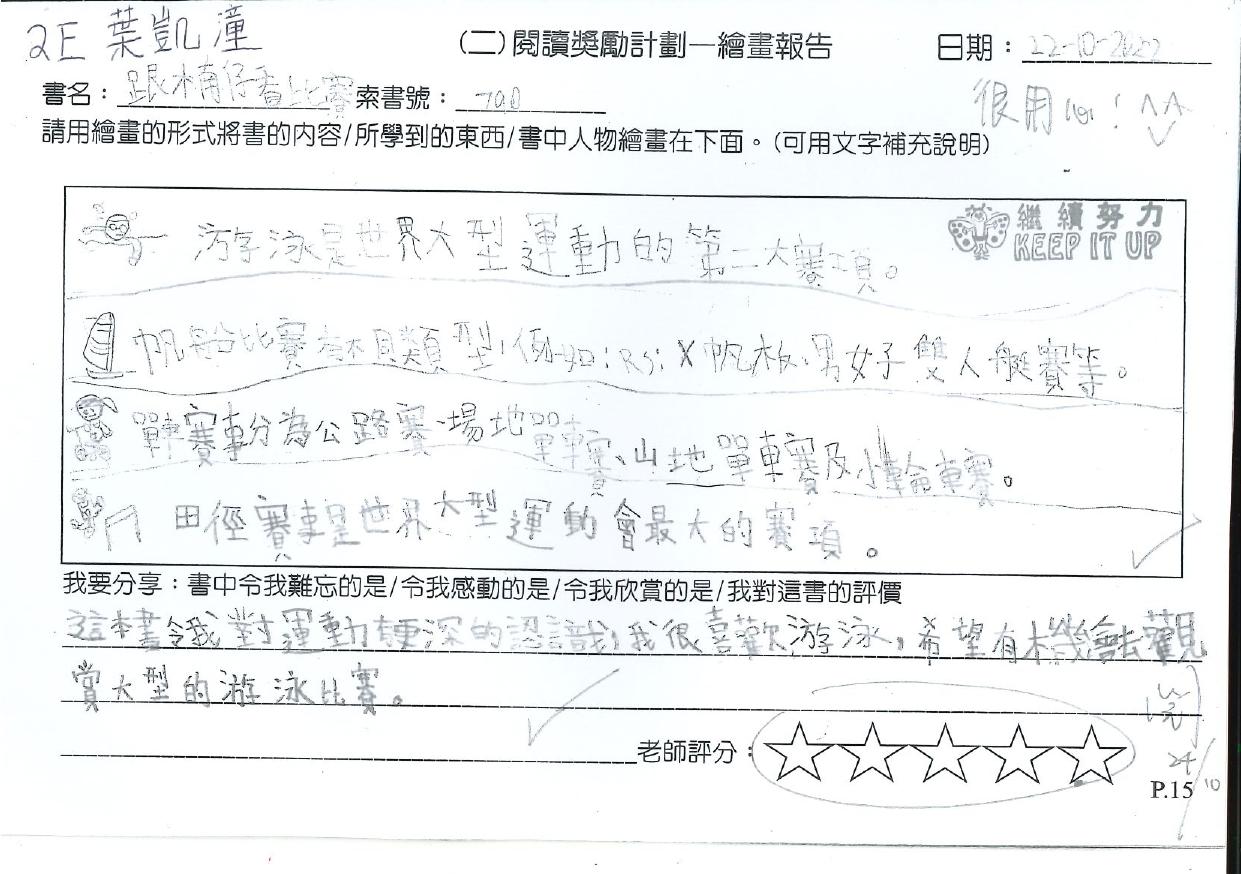 2E 葉凱潼
(二)閱讀獎勵計劃—繪畫報告
日期：22-10-2022
書名：跟楠仔看比賽 索書號：700
很用心！
請用繪畫的形式將書的內容/所學到的東西/書中人物繪畫在下面。(可用文字補充說明)
繼續努力
KEEP IT UP
游泳是世界大型運動的第二大賽項。
帆船比賽有不同類型，例如：RS：X帆板、男女子雙人艇賽等。
單車賽事分為公路賽、場地單車賽、山地單車賽及小輪車賽。
田徑賽事是世界大型運動會最大的賽項。
我要分享：書中令我難忘的是/令我感動的是/令我欣賞的是/我對這書的評價
這本書令我對運動有更深的認識，我很喜歡游泳，希望有機會去觀
賞大型的游泳比賽。
老師評分：☆☆☆☆☆
24/10
P.15